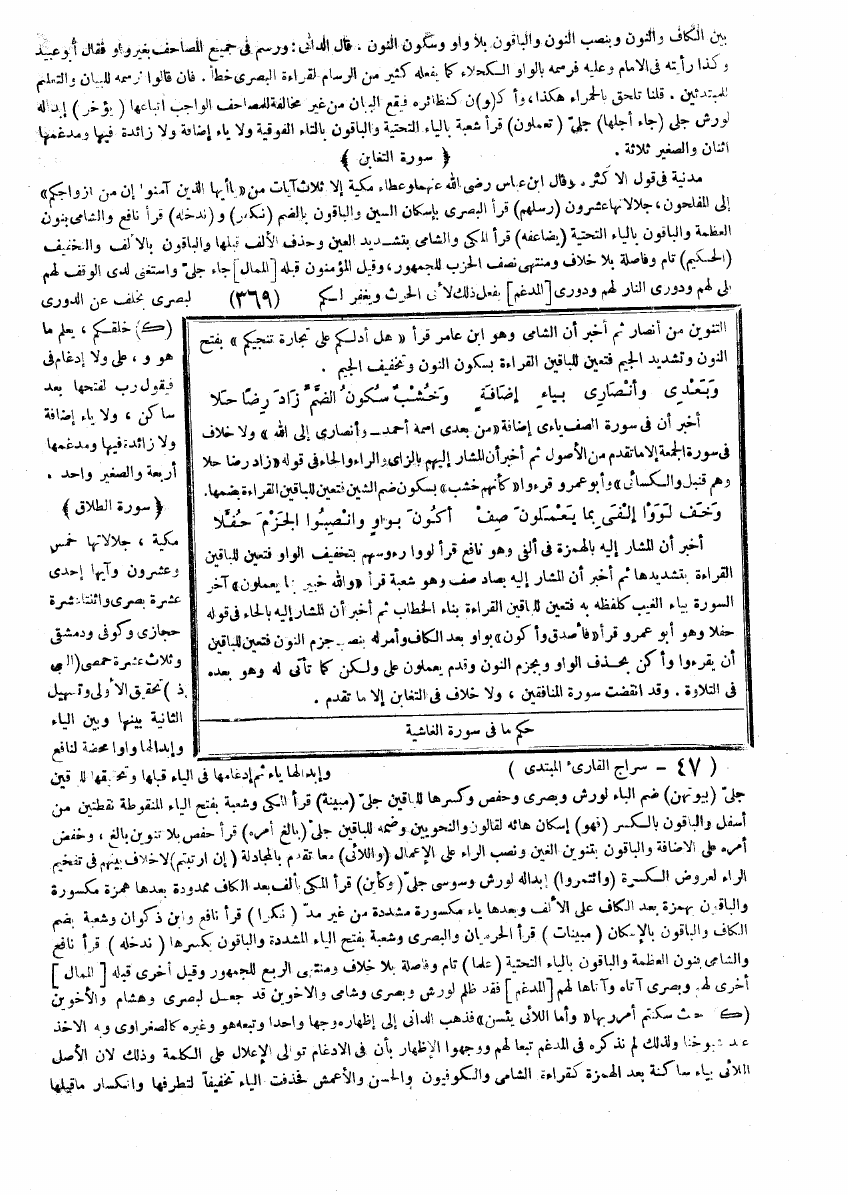 بين الكاف والنون وبنصب النون والباقون بلا واو وسكون النون . قال الدانى : ورسم فى جميع المصاحف بغير واو فقال أبو عبيد
وكذا رأيته فى الامام وعليه فرسمه بالواو الكحلاء كما يفعله كثير من الرسام لقراءة البصرى خطأ . فان قالوا نرسمه للبيان والتعليم
للمبتدئين . قلنا تلحق بالحمراء هكذا ، وأ كـ(و)ن كنظائره فيقع البيان من غير مخالفة للمصاحف الواجب اتباعها ( يؤخر ) إبداله
لورش جلى (جاء أجلها) جلىّ ( تعملون ) قرأ شعبة بالياء التحتية والباقون بالتاء الفوقية ولا ياء إضافة ولا زائدة فيها ومدغمها
اثنان والصغير ثلاثة .
﴿ سورة التغابن ﴾
مدنية فى قول الأكثر . وقال ابن عباس رضى الله عنهما وعطاء مكية إلا ثلاث آيات من «ياأيها الذين آمنوا إن من ازواجكم»
إلى المفلحون ، جلالاتها عشرون (رسلهم) قرأ البصرى بإسكان السين والباقون بالضم (نكفر) و (ندخله) قرأ نافع والشامى بنون
العظمة والباقون بالياء التحتية (يضاعفه) قرأ المكى والشامى بتشديد العين وحذف الألف قبلها والباقون بالألف والتخفيف
(الحكيم) تام وفاصلة بلا خلاف ومنتهى نصف الحزب للجمهور ، وقيل المؤمنون قبله [الممال] جاء جلىّ واستغنى لدى الوقف لهم
بلى لهم ودورى النار لهم ودورى [المدغم] يفعل ذلك لأبى الحرث ويغفر لـكم (٣٦٩) لبصرى بخلف عن الدورى
التنوين من أنصار ثم أخبر أن الشامى وهو ابن عامر قرأ « هل أدلكم على تجارة تنجيكم » بفتح
النون وتشديد الجيم فتعين للباقين القراءة بسكون النون وتخفيف الجيم .
وَبَعْدِى وَأَنْصَارِى بِيَاءِ إِضَافَةٍ وَخُشْبٌ سُكُونُ الضَّمِّ زَادَ رِضًا حَلَا
أخبر أن فى سورة الصف ياءى إضافة «من بعدى اسمه أحمد ــ وأنصارى إلى الله » ولا خلاف
فى سورة الجمعة إلا ما تقدم من الأصول ثم أخبر أن المشار إليهم بالزاى والراء والحاء فى قوله «زاد رضا حلا
وهم قنبل والكسائى» وأبو عمرو قرءوا «كأنهم خشب» بسكون ضم الشين فتعين للباقين القراءة بضمها.
وَخَفَّ لَوَوْا إِلْفًى بِمَا يَعْمَلُونَ صِفْ أَكُونَ بِوَاوٍ وَانْصِبُوا الْجَزْمَ حُفَّلَا
أخبر أن المشار إليه بالهمزة فى ألفى وهو نافع قرأ لووا رءوسهم بتخفيف الواو فتعين للباقين
القراءة بتشديدها ثم أخبر أن المشار إليه بصاد صف وهو شعبة قرأ «والله خبير بما يعملون» آخر
السورة بياء الغيب كلفظه به فتعين للباقين القراءة بتاء الخطاب ثم أخبر أن المشار إليه بالحاء فى قوله
حفلا وهو أبو عمرو قرأ «فأصدق وأكون» بواو بعد الكاف وأمر له بنصب جزم النون فتعين للباقين
أن يقرءوا وأكن بحذف الواو وبجزم النون وقدم يعملون على ولكن كما تأتى له وهو بعده
فى التلاوة . وقد انقضت سورة المنافقين ، ولا خلاف فى التغابن إلا ما تقدم .
حكم ما فى سورة الغاشية
(ك) خلقكم ، يعلم ما
هو و ، على ولا إدغام فى
فيقول رب لفتحها بعد
ساكن ، ولا ياء إضافة
ولا زائدة فيها ومدغمها
أربعة والصغير واحد .
﴿ سورة الطلاق ﴾
مكية ، جلالاتها خمس
وعشرون وآيها إحدى
عشرة بصرى واثنتا عشرة
حجازى وكوفى ودمشقى
وثلاث عشرة حمصى (النبى
إذ) تحقيق الأولى وتسهيل
الثانية بينها وبين الياء
وإبدالها واوا محضة لنافع
( ٤٧ – سراج القارىء المبتدى )
وإبدالها ياء ثم إدغامها فى الياء قبلها وتحقيقها للباقين
جلىّ (بيوتهن) ضم الباء لورش وبصرى وحفص وكسرها للباقين جلىّ (مبينة) قرأ المكى وشعبة بفتح الياء المنقوطة نقطتين من
أسفل والباقون بالكسر (فهو) إسكان هائه لقالون والنحويين وضمه للباقين جلىّ (بالغ أمره) قرأ حفص بلا تنوين بالغ ، وخفض
أمره على الاضافة والباقون بتنوين الغين ونصب الراء على الإعمال (واللائى) معا تقدم بالمجادلة (إن ارتبتم) لا خلاف بينهم فى تفخيم
الراء لعروض الكسرة (وائتمروا) إبداله لورش وسوسى جلىّ (وكأين) قرأ المكى بألف بعد الكاف ممدودة بعدها همزة مكسورة
والباقون بهمزة بعد الكاف على الألف وبعدها ياء مكسورة مشددة من غير مدّ ( نكرا ) قرأ نافع وابن ذكوان وشعبة بضم
الكاف والباقون بالإسكان ( مبينات ) قرأ الحرميان والبصرى وشعبة بفتح الياء المشددة والباقون بكسرها ( ندخله ) قرأ نافع
والشامى بنون العظمة والباقون بالياء التحتية (علما) تام وفاصلة بلا خلاف ومنتهى الربع للجمهور وقيل أخرى قبله [ الممال ]
أخرى لهم وبصرى آتاه وآتاها لهم [المدغم] فقد ظلم لورش وبصرى وشامى والاخوين قد جعل لبصرى وهشام والأخوين
(ك) حيث سكنتم أمر ربها «وأما اللائى يئسن» فذهب الدانى إلى إظهاره وجها واحدا وتبعه هو وغيره كالصفراوى وبه الاخذ
عند شيوخنا ولذلك لم نذكره فى المدغم تبعا لهم ووجهوا الإظهار بأن فى الادغام توالى الإعلال على الكلمة وذلك لان الأصل
اللائى بياء ساكنة بعد الهمزة كقراءة الشامى والكوفيون والحسن والأعمش فحذفت الياء تخفيفاً لتطرفها وانكسار ماقبلها